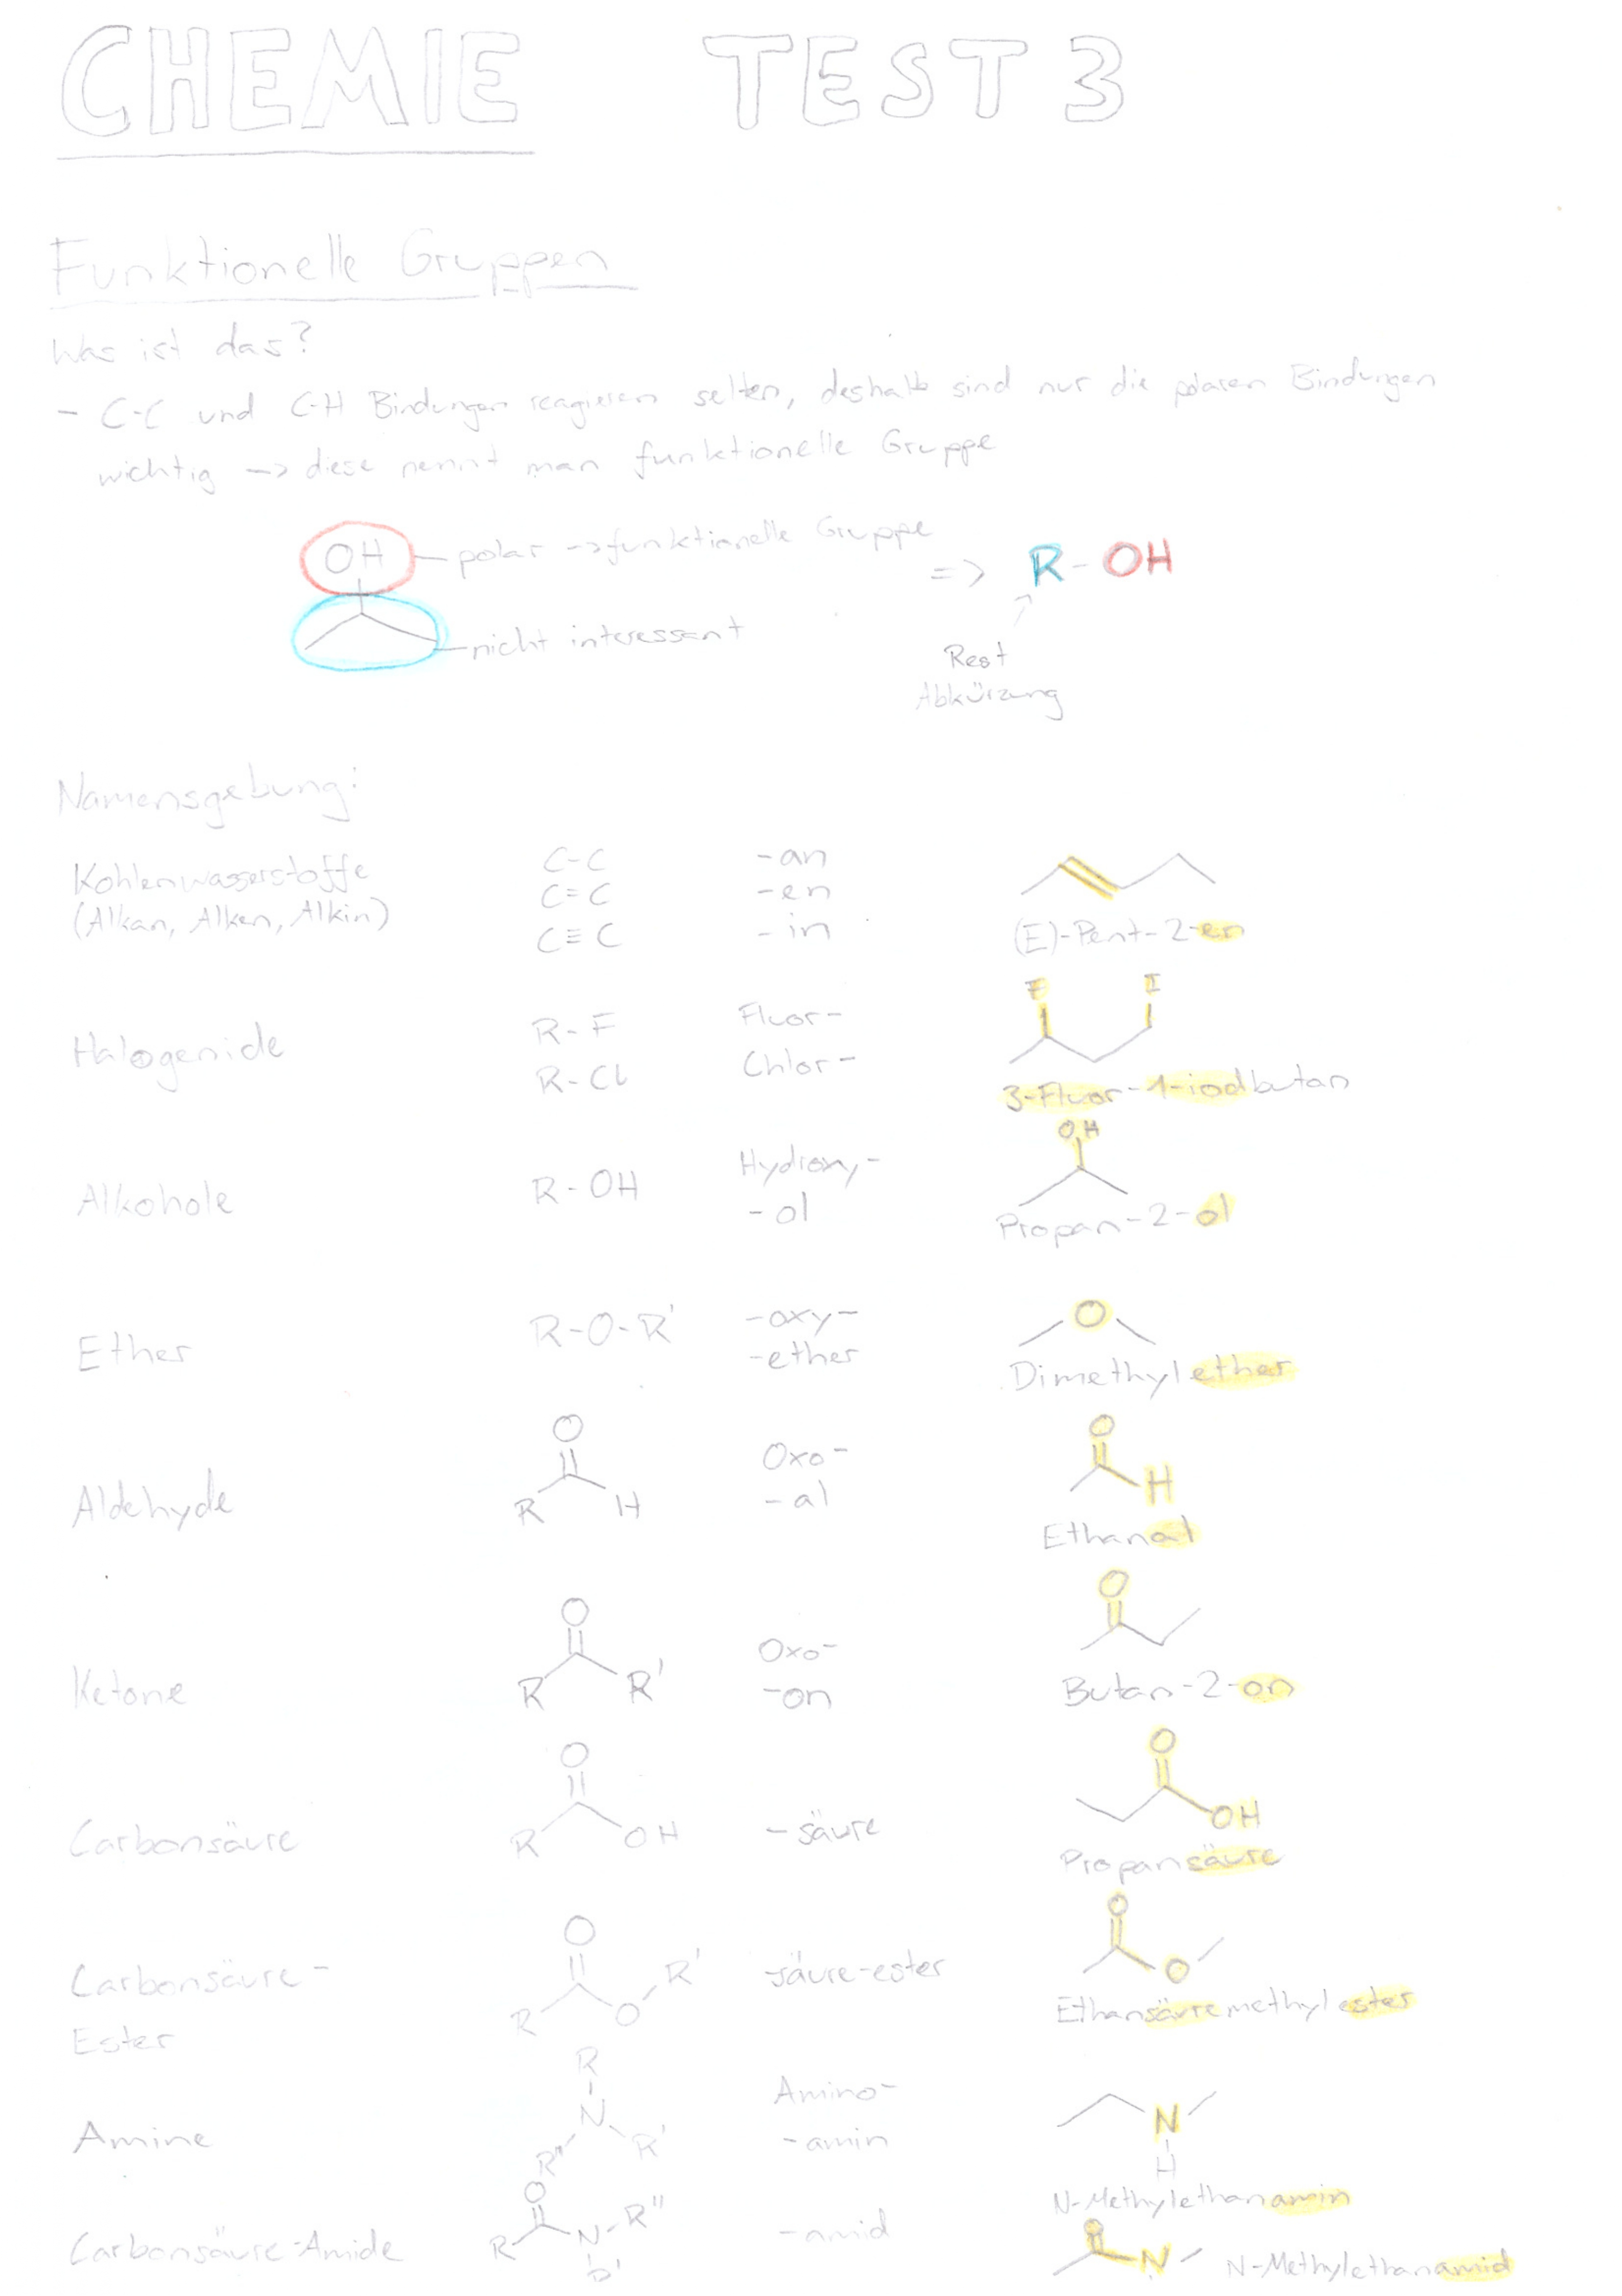 CHEMIE TEST 3
Funktionelle Gruppen
Was ist das?
- C-C und C-H Bindungen reagieren selten, deshalb sind nur die polaren Bindungen
wichtig -> diese nennt man funktionelle Gruppe
OH - polar -> funktionelle Gruppe => R-OH
nicht interessant
Rest
Abkürzung
Namensgebung:
Kohlenwasserstoffe C-C -an
(Alkan, Alken, Alkin) C=C -en
C≡C -in (E)-Pent-2-en
F I
Halogenide R-F Fluor-
R-Cl Chlor-
3-Fluor-1-iodbutan
OH
Alkohole R-OH Hydroxy-
-ol Propan-2-ol
Ether R-O-R' -oxy- O
-ether Dimethylether
O O
Aldehyde R H Oxo- H
-al Ethanal
O O
Ketone R R' Oxo-
-on Butan-2-on
O O
Carbonsäure R OH -säure OH
Propansäure
O O
Carbonsäure- R O R' säure-ester O
Ester Ethansäuremethylester
R
Amine N R' R'' Amino- N
-amin H
N-Methylethanamin
O
Carbonsäure-Amide R N-R'' -amid N N-Methylethanamid